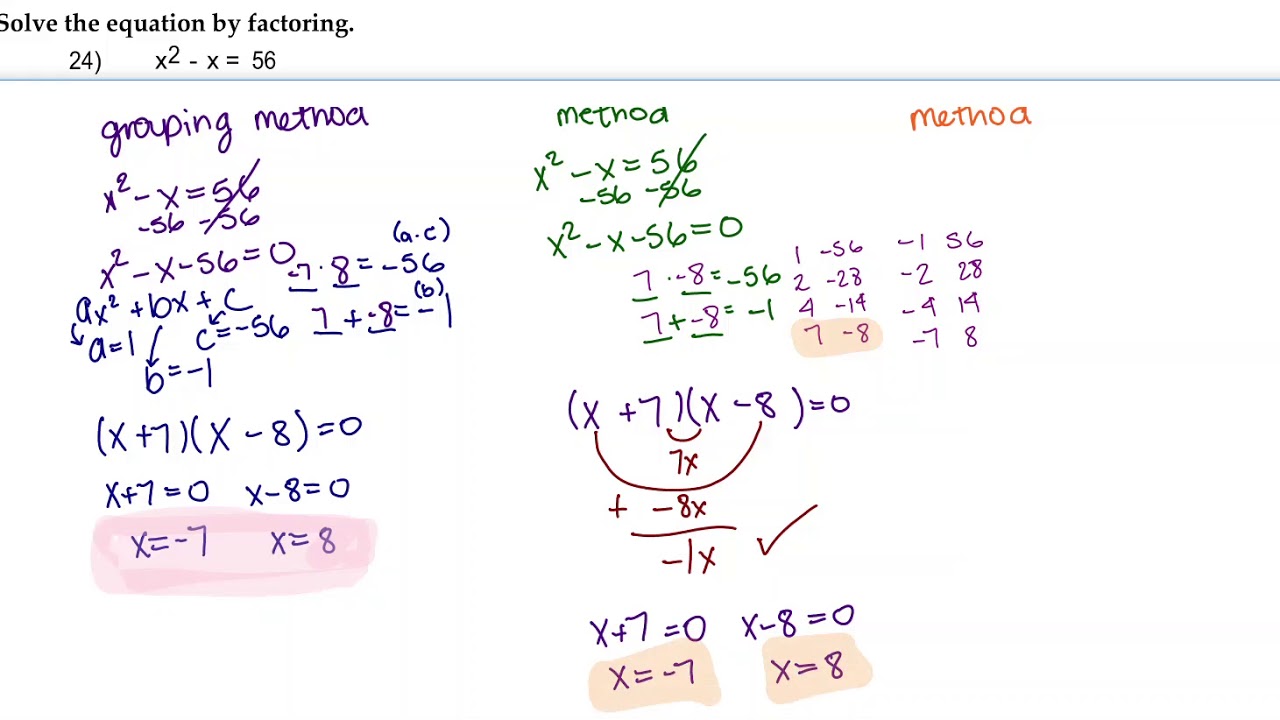 Solve the equation by factoring.
24) x² - x = 56
grouping method
x² - x = 56
-56 -56
x² - x - 56 = 0
(a·c)
-7 · 8 = -56
ax² + bx + c
(b)
7 + -8 = -1
a = 1
c = -56
b = -1
(x + 7)(x - 8) = 0
x + 7 = 0 x - 8 = 0
x = -7 x = 8
method
x² - x = 56
-56 -56
x² - x - 56 = 0
7 · -8 = -56
7 + -8 = -1
1 -56 -1 56
2 -28 -2 28
4 -14 -4 14
7 -8 -7 8
(x + 7)(x - 8) = 0
7x
+ -8x
-1x ✓
x + 7 = 0 x - 8 = 0
x = -7 x = 8
method